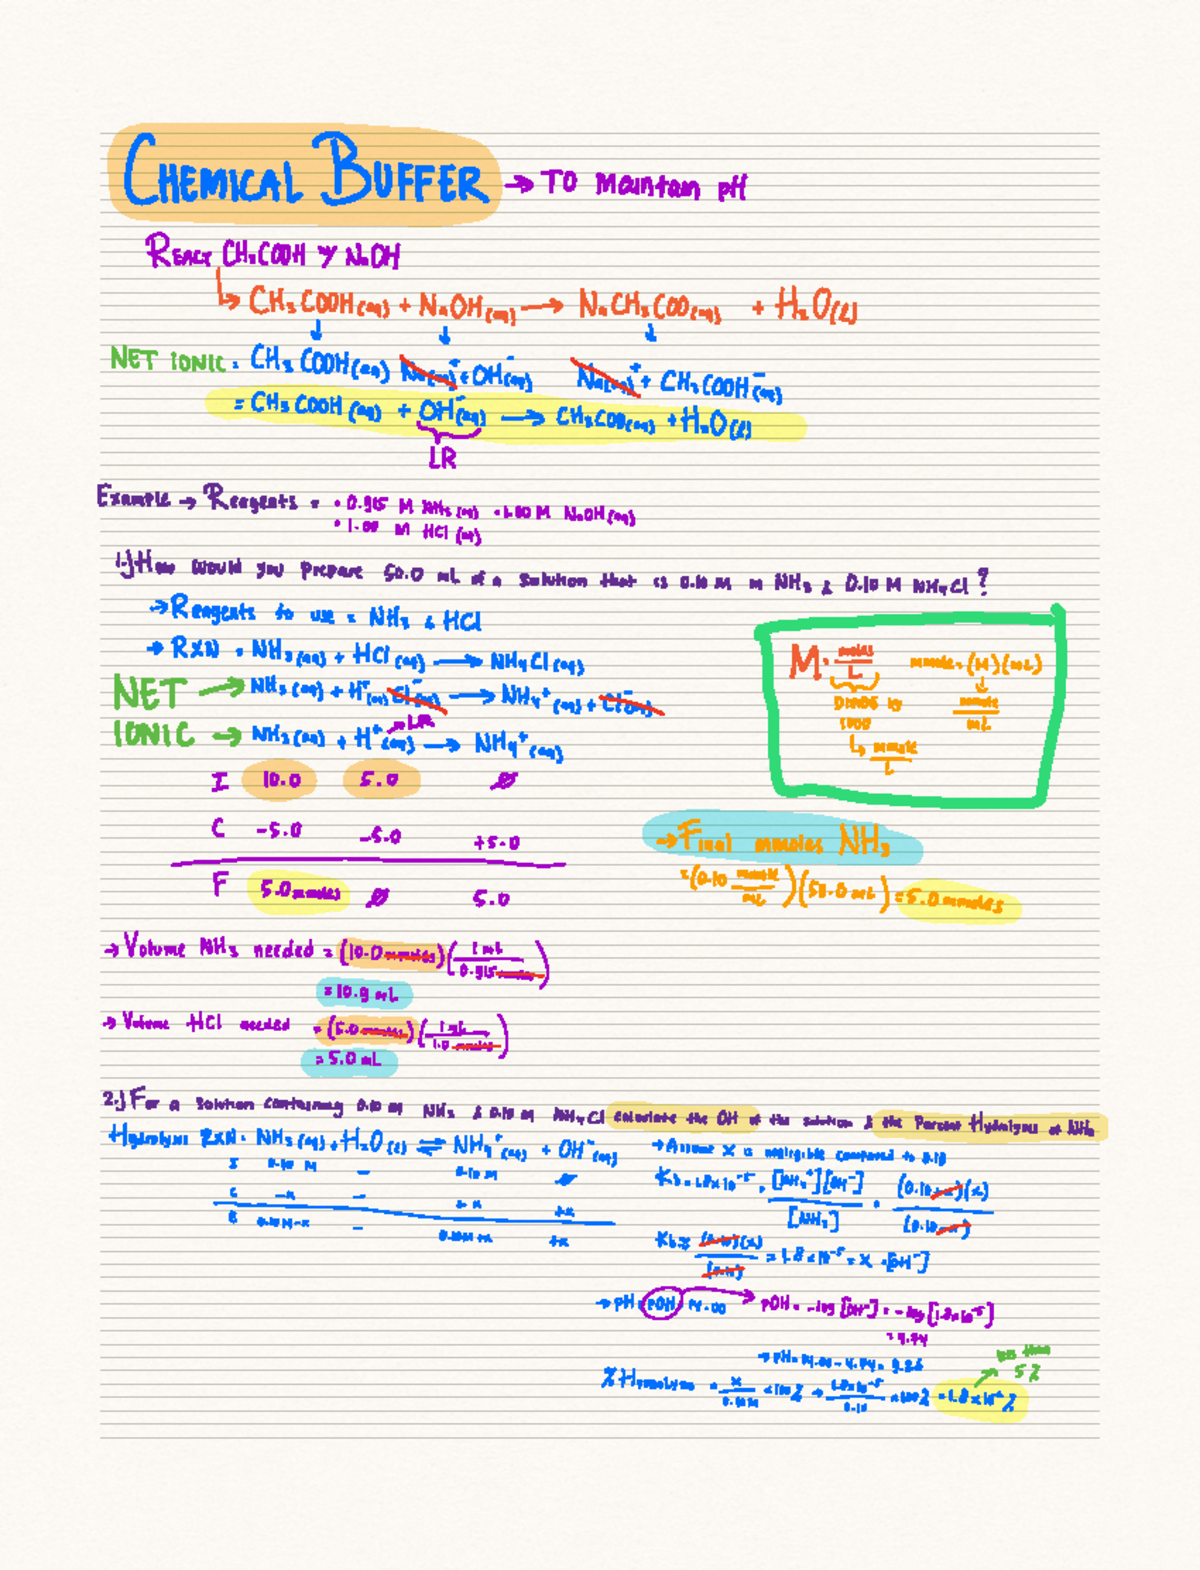 CHEMICAL BUFFER → TO Maintain pH
REACT CH₃COOH y NaOH
↳ CH₃COOH(aq) + NaOH(aq) → NaCH₃COO(aq) + H₂O(l)
NET IONIC: CH₃COOH(aq) Na(aq)⁺ + OH⁻(aq) Na(aq)⁺ + CH₃COOH⁻(aq)
= CH₃COOH(aq) + OH⁻(aq) → CH₃COO(aq) + H₂O(l)
LR
Example → Reagents = • 0.915 M NH₃(aq) • 1.00 M NaOH(aq)
• 1.00 M HCl(aq)
1.) How would you prepare 50.0 mL of a solution that is 0.10 M in NH₃ & 0.10 M NH₄Cl?
→ Reagents to use = NH₃ & HCl
→ RXN = NH₃(aq) + HCl(aq) → NH₄Cl(aq)
NET → NH₃(aq) + H⁺(aq) Cl⁻(aq) → NH₄⁺(aq) + Cl⁻(aq)
→ LR
IONIC → NH₃(aq) + H⁺(aq) → NH₄⁺(aq)
I 10.0 5.0 ∅
C -5.0 -5.0 +5.0
F 5.0 mmoles ∅ 5.0
M = moles/L mmole = (M)(mL)
DIVIDE by 1000 ↓ mmole/mL
↳ mmole/L
→ Final mmoles NH₃
= (0.10 mmole/mL)(50.0 mL) = 5.0 mmoles
→ Volume NH₃ needed = (10.0 mmoles)(1 mL/0.915 mmoles)
= 10.9 mL
→ Volume HCl needed = (5.0 mmoles)(1 mL/1.0 mmoles)
= 5.0 mL
2.) For a solution containing 0.10 M NH₃ & 0.10 M NH₄Cl calculate the OH of the solution & the Percent Hydrolysis of NH₃
Hydrolysis RXN: NH₃(aq) + H₂O(l) ⇌ NH₄⁺(aq) + OH⁻(aq)
I 0.10 M – 0.10 M ∅
C -x – +x +x
E 0.10M-x – 0.10M+x +x
→ Assume x is negligible compared to 0.10
Kb = 1.8x10⁻⁵ = [NH₄⁺][OH⁻]/[NH₃] = (0.10+x)(x)/(0.10-x)
Kb = (0.10)(x)/(0.10) = 1.8x10⁻⁵ = x = [OH⁻]
→ pH + pOH = 14.00 → pOH = -log[OH⁻] = -log[1.8x10⁻⁵]
= 4.74
→ pH = 14.00 - 4.74 = 9.26
% Hydrolysis = x/0.10M x100% → 1.8x10⁻⁵/0.10 x100% = 1.8x10⁻²%
less than
5%